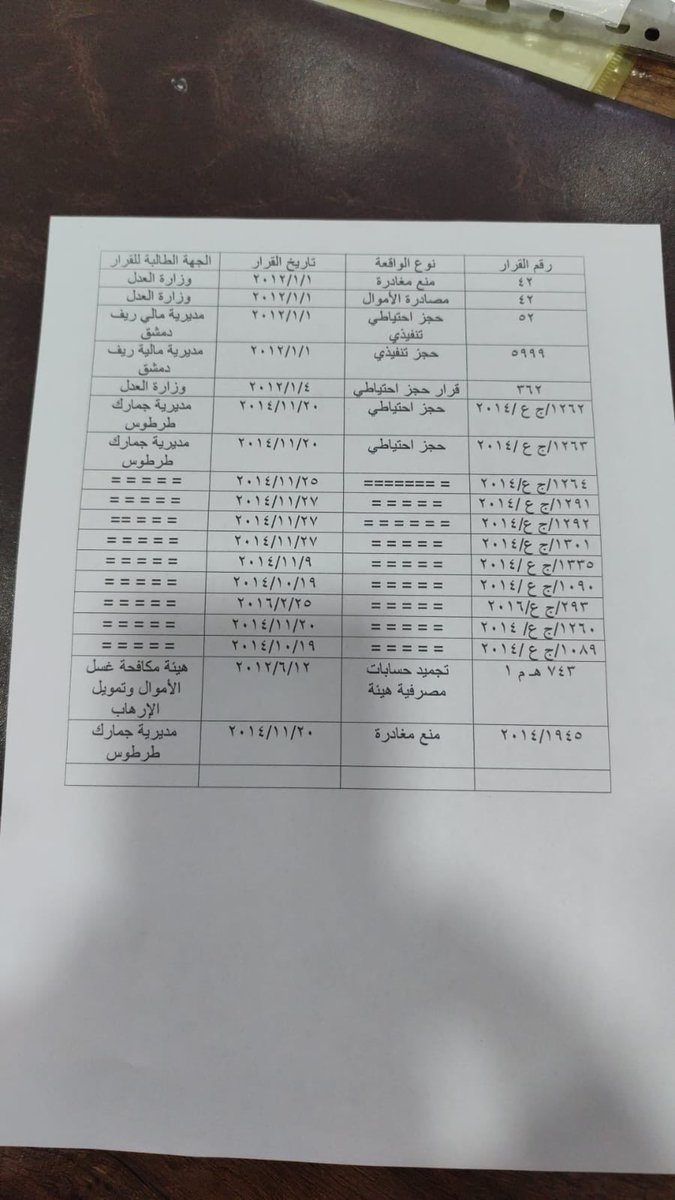 رقم القرار نوع الواقعة تاريخ القرار الجهة الطالبة للقرار
٤٢ منع مغادرة ٢٠١٢/١/١ وزارة العدل
٤٢ مصادرة الأموال ٢٠١٢/١/١ وزارة العدل
٥٢ حجز احتياطي ٢٠١٢/١/١ مديرية مالي ريف
تنفيذي دمشق
٥٩٩٩ حجز تنفيذي ٢٠١٢/١/١ مديرية مالية ريف
دمشق
٣٦٢ قرار حجز احتياطي ٢٠١٢/١/٤ وزارة العدل
١٢٦٢/ج ع /٢٠١٤ حجز احتياطي ٢٠١٤/١١/٢٠ مديرية جمارك
طرطوس
١٢٦٣/ج ع /٢٠١٤ حجز احتياطي ٢٠١٤/١١/٢٠ مديرية جمارك
طرطوس
١٢٦٤/ج ع/٢٠١٤ ======= = ٢٠١٤/١١/٢٥ = = = = =
١٢٩١/ج ع /٢٠١٤ = = = = = ٢٠١٤/١١/٢٧ = = = = =
١٢٩٢/ج ع /٢٠١٤ = = = = = = ٢٠١٤/١١/٢٧ == = = =
١٣٠١/ج ع/٢٠١٤ = = = = = ٢٠١٤/١١/٢٧ = = = = =
١٣٣٥/ج ع /٢٠١٤ = = = = = ٢٠١٤/١١/٩ = = = = =
١٠٩٠/ج ع /٢٠١٤ = = = = = ٢٠١٤/١٠/١٩ = = = = =
٢٩٣/ج ع/٢٠١٦ = = = = = ٢٠١٦/٢/٢٥ = = = = =
١٢٦٠/ج ع/ ٢٠١٤ = = = = = ٢٠١٤/١١/٢٠ = = = = =
١٠٨٩/ج ع /٢٠١٤ = = = = = ٢٠١٤/١٠/١٩ = = = = =
٧٤٣ هـ م ١ تجميد حسابات ٢٠١٢/٦/١٢ هيئة مكافحة غسل
مصرفية هيئة الأموال وتمويل
الإرهاب
٢٠١٤/١٩٤٥ منع مغادرة ٢٠١٤/١١/٢٠ مديرية جمارك
طرطوس